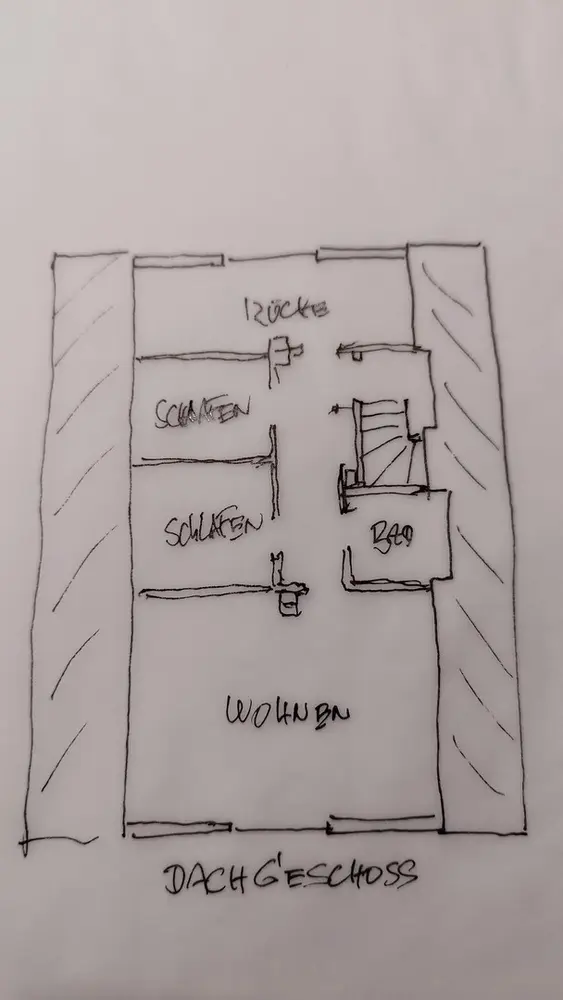 KÜCHE
SCHLAFEN
SCHLAFEN
BAD
WOHNEN
DACHGESCHOSS